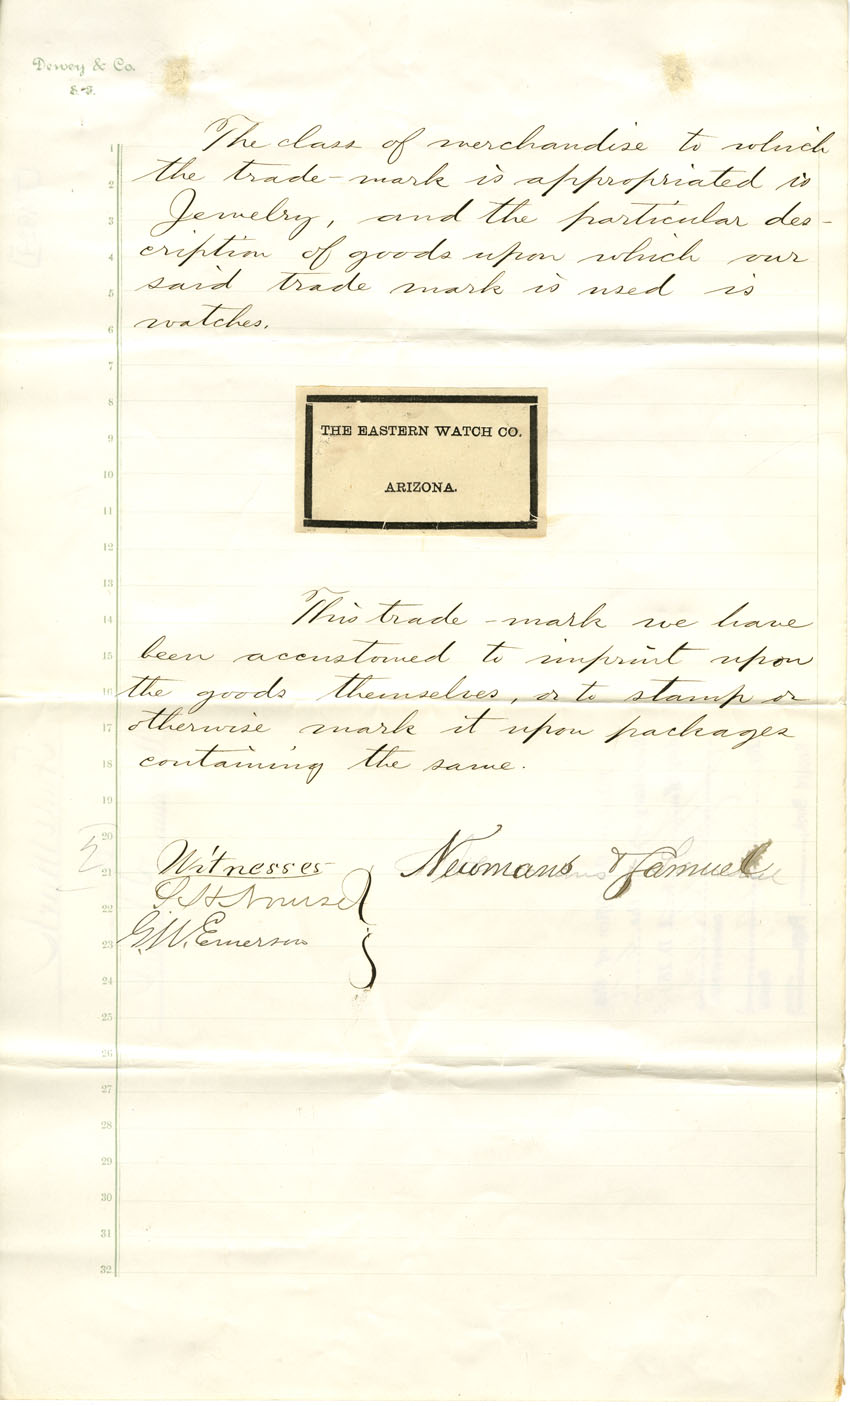 Dewey & Co.
S.F.
1 The class of merchandise to which
2 the trade-mark is appropriated is
3 Jewelry, and the particular des-
4 cription of goods upon which our
5 said trade mark is used is
6 watches.
7
8
THE EASTERN WATCH CO.
9
10
ARIZONA.
11
12
13
14 This trade-mark we have
15 been accustomed to imprint upon
16 the goods themselves, or to stamp or
17 otherwise mark it upon packages
18 containing the same.
19
20
21 Witnesses Newmans & Samuel
22 S. H. Nourse
23 G. W. Emerson
24
25
26
27
28
29
30
31
32